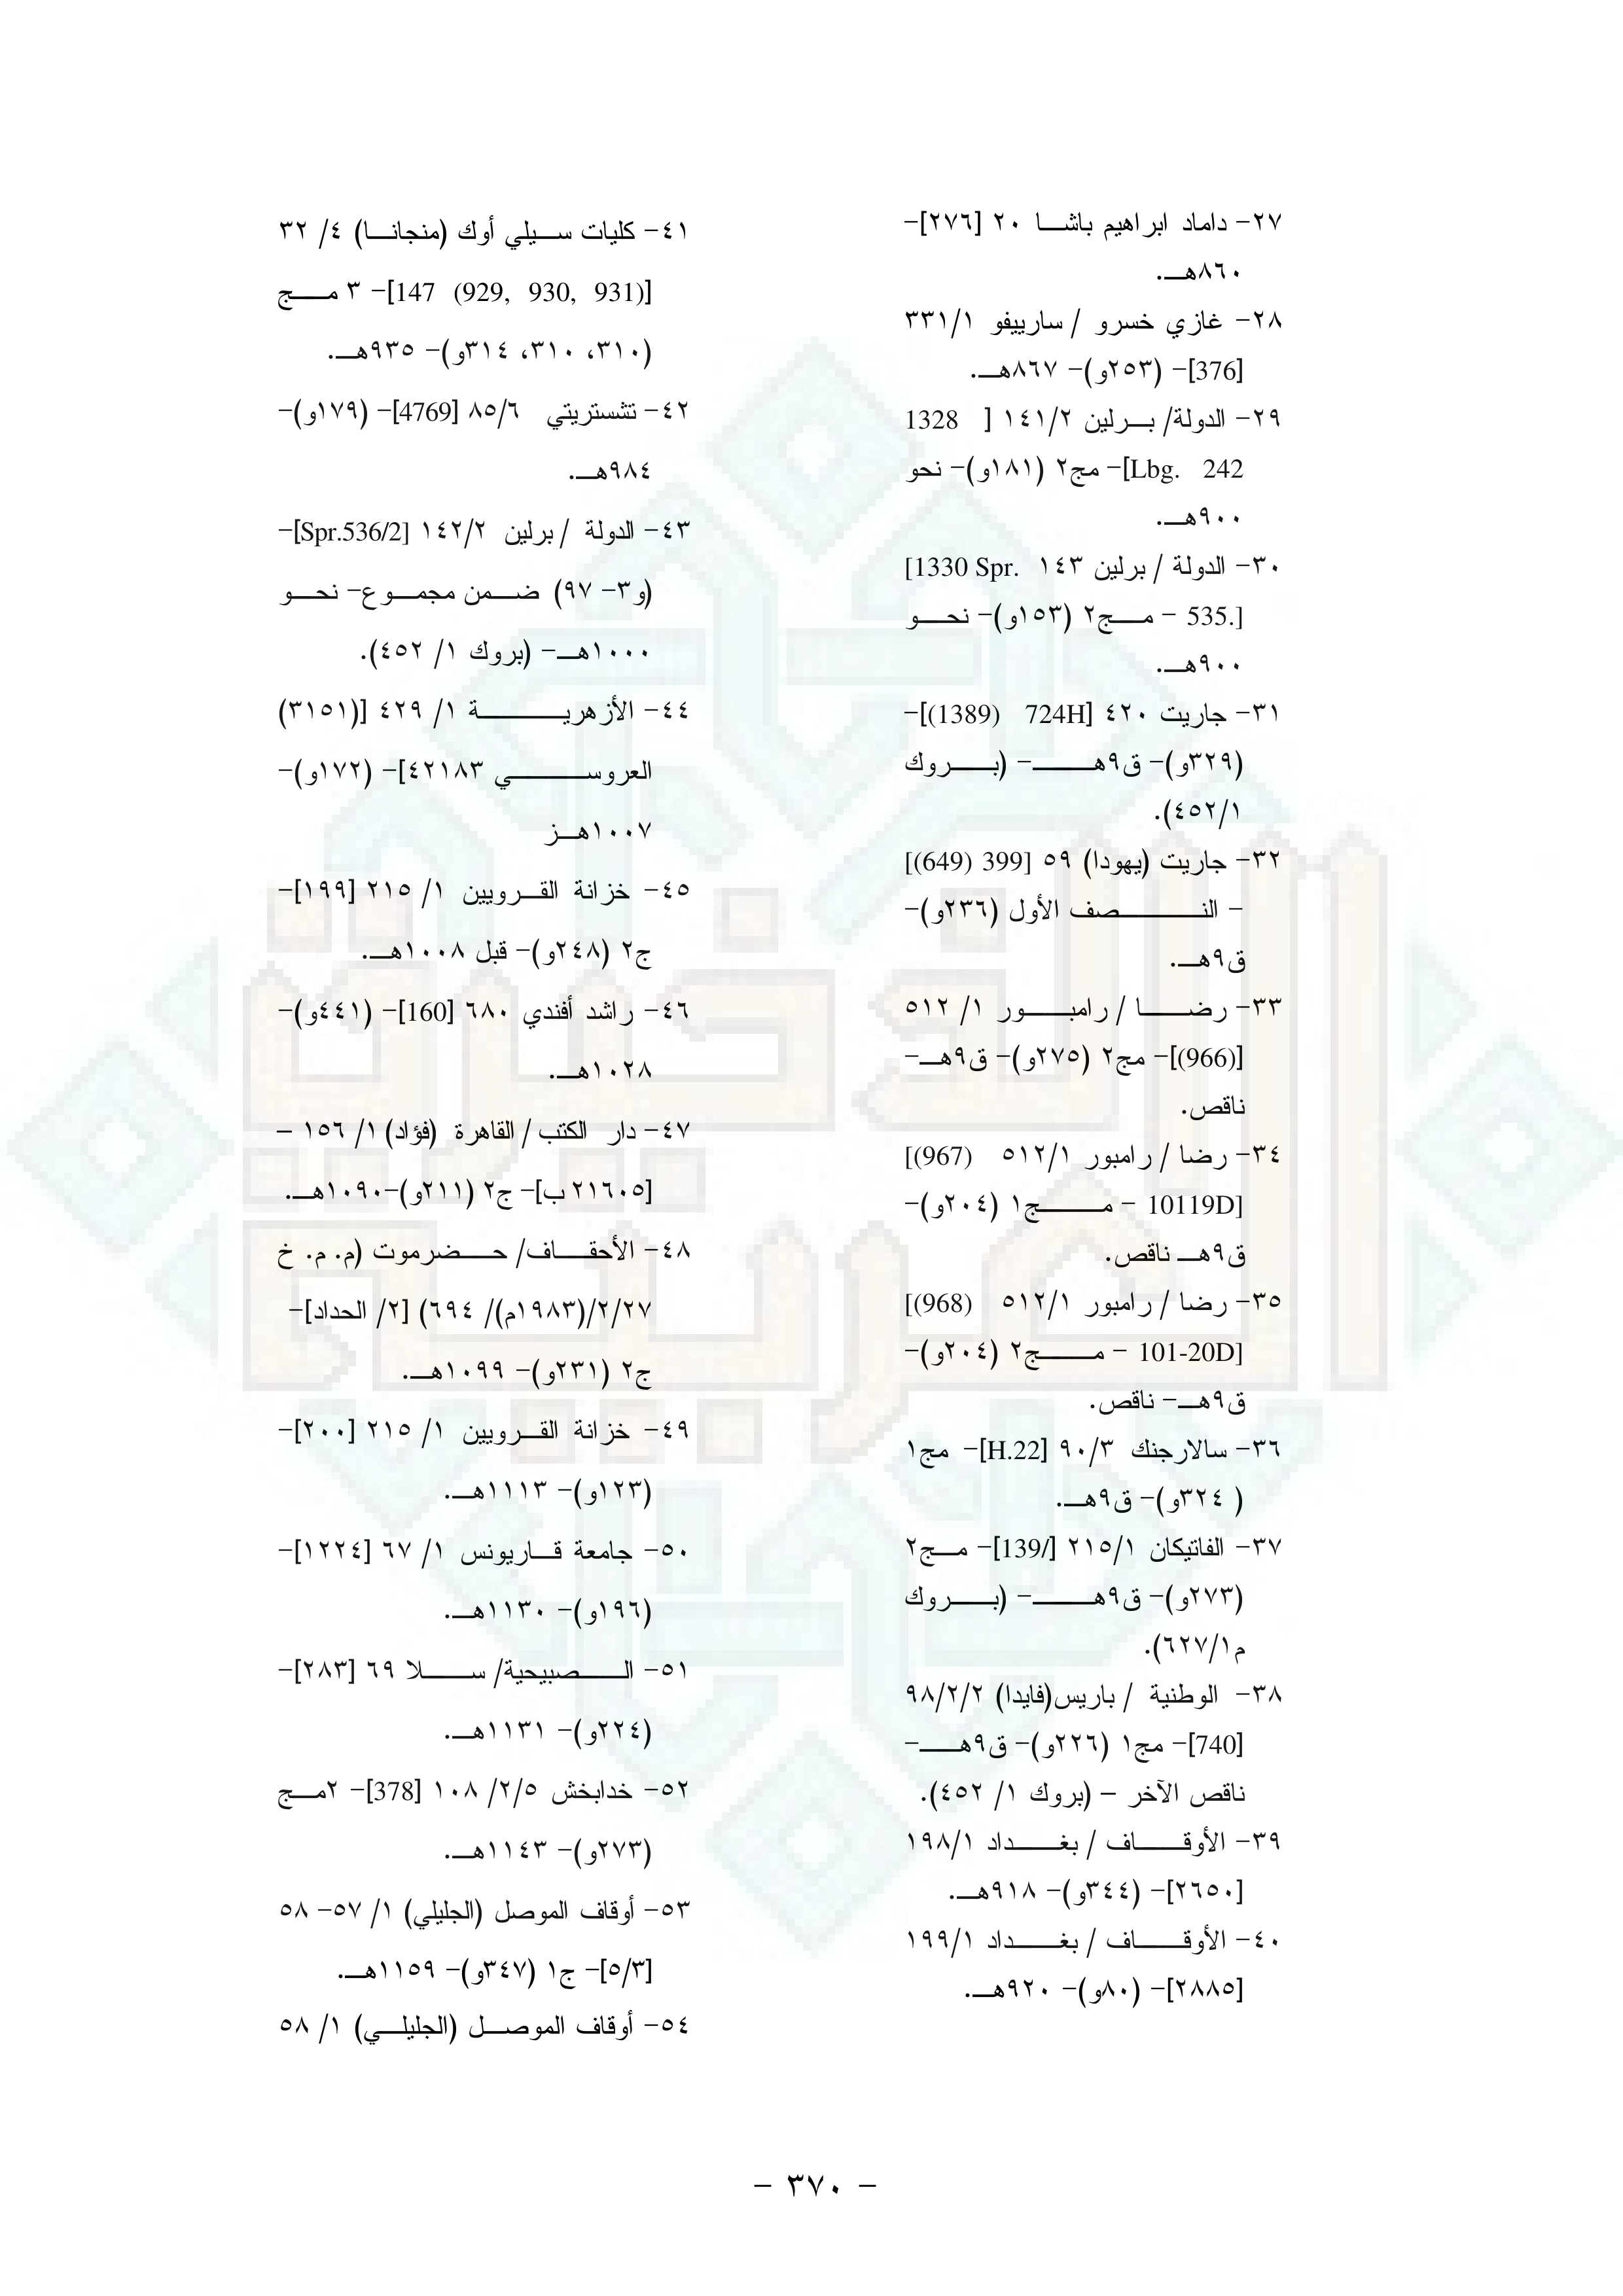 ٢٧- داماد ابراهيم باشا ٢٠ [٢٧٦]-
٨٦٠هـ.
٢٨- غازي خسرو / سارييفو ٣٣١/١
[376]- (٢٥٣و)- ٨٦٧هـ.
٢٩- الدولة/ برلين ١٤١/٢ [ 1328
Lbg. 242]- مج٢ (١٨١و)- نحو
٩٠٠هـ.
٣٠- الدولة / برلين ١٤٣ [1330 Spr.
535.] - مج٢ (١٥٣و)- نحو
٩٠٠هـ.
٣١- جاريت ٤٢٠ [724H (1389)]-
(٣٢٩و)- ق٩هـ- (بروك
٤٥٢/١).
٣٢- جاريت (يهودا) ٥٩ [399 (649)]
- النصف الأول (٢٣٦و)-
ق٩هـ.
٣٣- رضا / رامبور ١/ ٥١٢
[(966)]- مج٢ (٢٧٥و)- ق٩هـ-
ناقص.
٣٤- رضا / رامبور ٥١٢/١ [(967)
10119D] - مج١ (٢٠٤و)-
ق٩هـ ناقص.
٣٥- رضا / رامبور ٥١٢/١ [(968)
101-20D] - مج٢ (٢٠٤و)-
ق٩هـ- ناقص.
٣٦- سالارجنك ٩٠/٣ [H.22]- مج١
( ٣٢٤و)- ق٩هـ.
٣٧- الفاتيكان ٢١٥/١ [/139]- مج٢
(٢٧٣و)- ق٩هـ- (بروك
م٦٢٧/١).
٣٨- الوطنية / باريس(فايدا) ٩٨/٢/٢
[740]- مج١ (٢٢٦و)- ق٩هـ-
ناقص الآخر – (بروك ١/ ٤٥٢).
٣٩- الأوقاف / بغداد ١٩٨/١
[٢٦٥٠]- (٣٤٤و)- ٩١٨هـ.
٤٠- الأوقاف / بغداد ١٩٩/١
[٢٨٨٥]- (٨٠و)- ٩٢٠هـ.
٤١- كليات سيلي أوك (منجانا) ٤/ ٣٢
[147 (929, 930, 931)]- ٣ مج
(٣١٠، ٣١٠، ٣١٤و)- ٩٣٥هـ.
٤٢- تشستريتي ٨٥/٦ [4769]- (١٧٩و)-
٩٨٤هـ.
٤٣- الدولة / برلين ١٤٢/٢ [Spr.536/2]-
(و٣- ٩٧) ضمن مجموع- نحو
١٠٠٠هـ- (بروك ١/ ٤٥٢).
٤٤- الأزهرية ١/ ٤٢٩ [(٣١٥١)
العروسي ٤٢١٨٣]- (١٧٢و)-
١٠٠٧هـز
٤٥- خزانة القرويين ١/ ٢١٥ [١٩٩]-
ج٢ (٢٤٨و)- قبل ١٠٠٨هـ.
٤٦- راشد أفندي ٦٨٠ [160]- (٤٤١و)-
١٠٢٨هـ.
٤٧- دار الكتب/ القاهرة (فؤاد) ١/ ١٥٦ –
[٢١٦٠٥ ب]- ج٢ (٢١١و)-١٠٩٠هـ.
٤٨- الأحقاف/ حضرموت (م. م. خ
٢/٢٧/(١٩٨٣م)/ ٦٩٤) [٢/ الحداد]-
ج٢ (٢٣١و)- ١٠٩٩هـ.
٤٩- خزانة القرويين ١/ ٢١٥ [٢٠٠]-
(١٢٣و)- ١١١٣هـ.
٥٠- جامعة قاريونس ١/ ٦٧ [١٢٢٤]-
(١٩٦و)- ١١٣٠هـ.
٥١- الصبيحية/ سلا ٦٩ [٢٨٣]-
(٢٢٤و)- ١١٣١هـ.
٥٢- خدابخش ٢/٥/ ١٠٨ [378]- ٢مج
(٢٧٣و)- ١١٤٣هـ.
٥٣- أوقاف الموصل (الجليلي) ١/ ٥٧- ٥٨
[٥/٣]- ج١ (٣٤٧و)- ١١٥٩هـ.
٥٤- أوقاف الموصل (الجليلي) ١/ ٥٨
- ٣٧٠ -